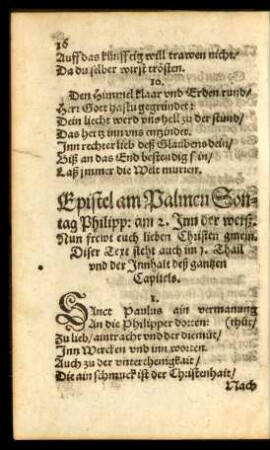 16
Auff das künfftig will trawen nicht/
Da du selber wirst trösten.
10.
Den Himmel klaar vnd Erden rund/
Herr Gott hastu gegründet:
Dein liecht werd vns hell zu der stund/
Das hertz inn vns entzündet.
Inn rechter lieb deß Glaubens dein/
Biß an das End bestendig sein/
Laß jmmer die Welt murren.
Epistel am Palmen Son-
tag Philipp: am 2. Inn der weiß.
Nun frewt euch lieben Christen gmein.
Diser Text steht auch im 3. Thail
vnd der Innhalt deß gantzen
Capitels.
1.
Sanct Paulus ain vermanung
An die Philipper dorten: (thüt/
Zu lieb/ aintracht vnd der diemüt/
Inn Wercken vnd inn worten.
Auch zu der vnterthenigkait/
Die ain schmuck ist der Christenhait/
Nach